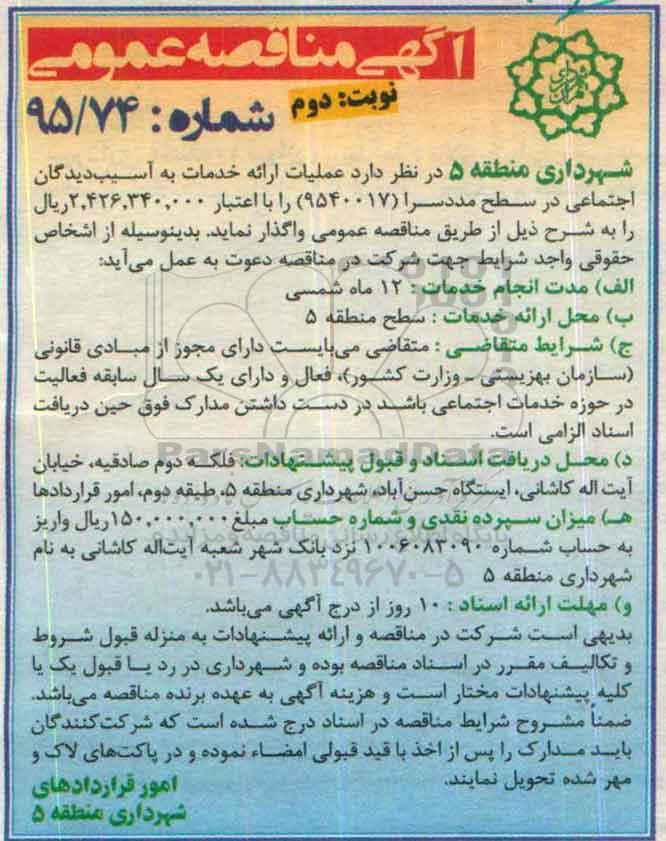 آگهی مناقصه عمومی
نوبت: دوم
شماره: ۹۵/۷۴
شهرداری منطقه ۵ در نظر دارد عملیات ارائه خدمات به آسیب‌دیدگان
اجتماعی در سطح مددسرا (۹۵۴۰۰۱۷) را با اعتبار ۲,۴۲۶,۳۴۰,۰۰۰ریال
را به شرح ذیل از طریق مناقصه عمومی واگذار نماید. بدینوسیله از اشخاص
حقوقی واجد شرایط جهت شرکت در مناقصه دعوت به عمل می‌آید:
الف) مدت انجام خدمات : ۱۲ ماه شمسی
ب) محل ارائه خدمات : سطح منطقه ۵
ج) شرایط متقاضی : متقاضی می‌بایست دارای مجوز از مبادی قانونی
(سازمان بهزیستی ـ وزارت کشور)، فعال و دارای یک سال سابقه فعالیت
در حوزه خدمات اجتماعی باشد در دست داشتن مدارک فوق حین دریافت
اسناد الزامی است.
ParsNamadData
د) محل دریافت اسناد و قبول پیشنهادات: فلکه دوم صادقیه، خیابان
آیت اله کاشانی، ایستگاه حسن‌آباد، شهرداری منطقه ۵، طبقه دوم، امور قراردادها
هـ) میزان سپرده نقدی و شماره حساب مبلغ ۱۵۰,۰۰۰,۰۰۰ریال واریز
به حساب شماره ۱۰۰۶۰۸۳۰۹۰ نزد بانک شهر شعبه آیت‌اله کاشانی به نام
۰۲۱-۸۸۳۴۹۶۷۰-۵
شهرداری منطقه ۵
و) مهلت ارائه اسناد : ۱۰ روز از درج آگهی می‌باشد.
بدیهی است شرکت در مناقصه و ارائه پیشنهادات به منزله قبول شروط
و تکالیف مقرر در اسناد مناقصه بوده و شهرداری در رد یا قبول یک یا
کلیه پیشنهادات مختار است و هزینه آگهی به عهده برنده مناقصه می‌باشد.
ضمناً مشروح شرایط مناقصه در اسناد درج شده است که شرکت‌کنندگان
باید مدارک را پس از اخذ با قید قبولی امضاء نموده و در پاکت‌های لاک و
مهر شده تحویل نمایند.
امور قراردادهای
شهرداری منطقه ۵